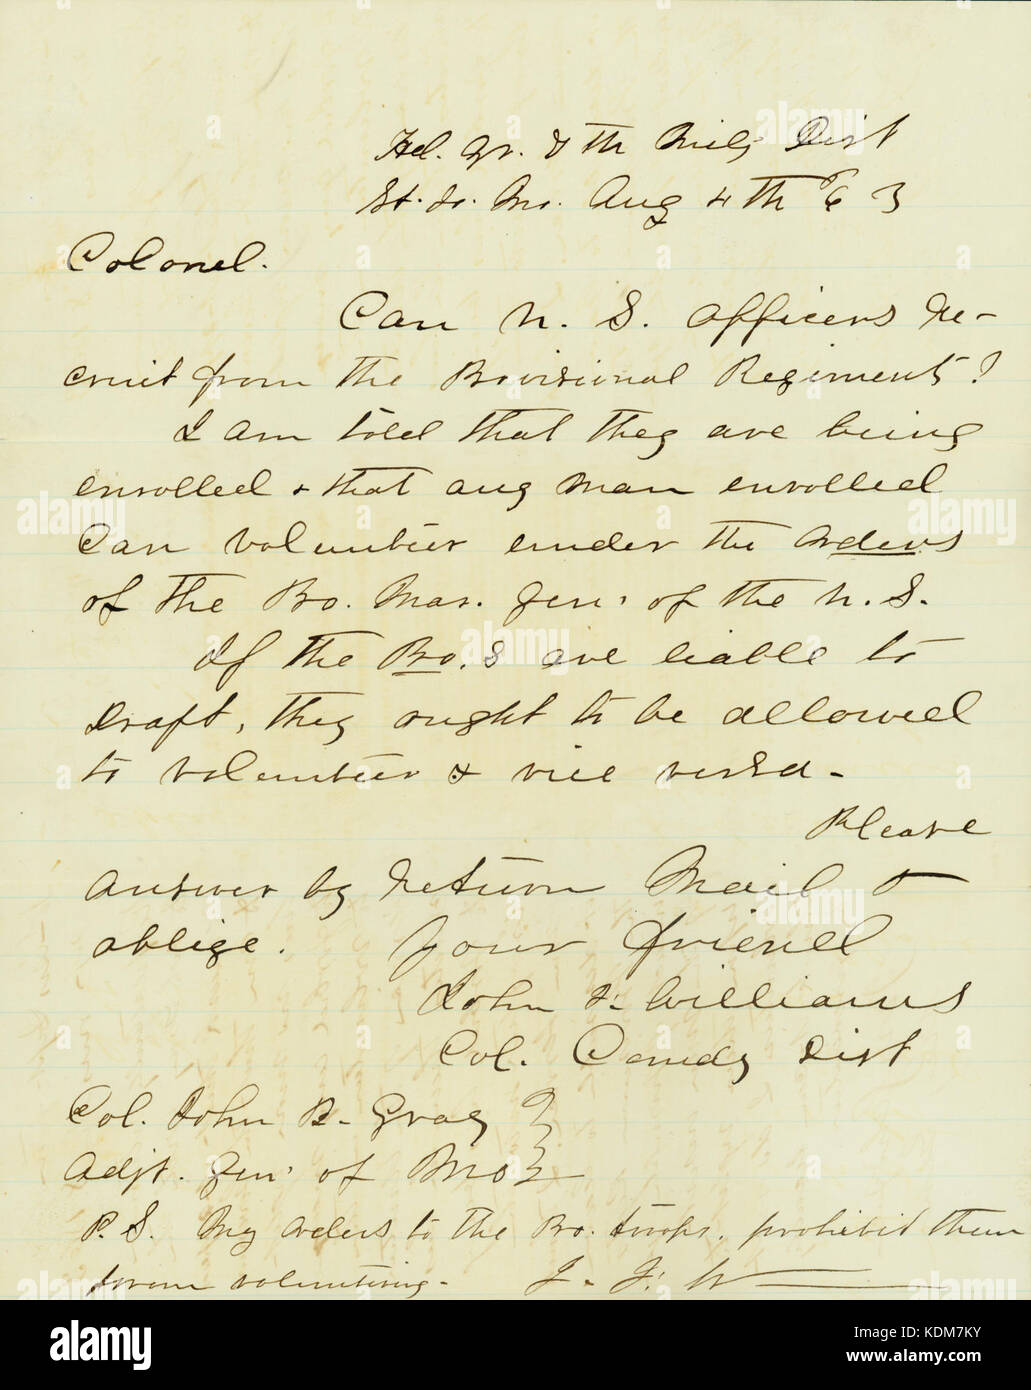 Hd. Qr. 7th Mily Dist
St. Jo. Mo. Aug 4th 63
Colonel.
Can U. S. officers re-
cruit from the Provisional Regiments?
I am told that they are being
enrolled & that any man enrolled
can volunteer under the orders
of the Pro. Mar. Gen' of the U. S.
If the Pro.s are liable to
Draft, they ought to be allowed
to volunteer & vice versa -
Please
answer by return Mail &
oblige. Your friend
John F. Williams
Col. Comdg Dist
Col. John B. Gray
Adjt. Gen' of Mo
P. S. My orders to the Pro. troops. prohibit them
from volunteering - J. F. W
alamy
Image ID: KDM7KY
www.alamy.com